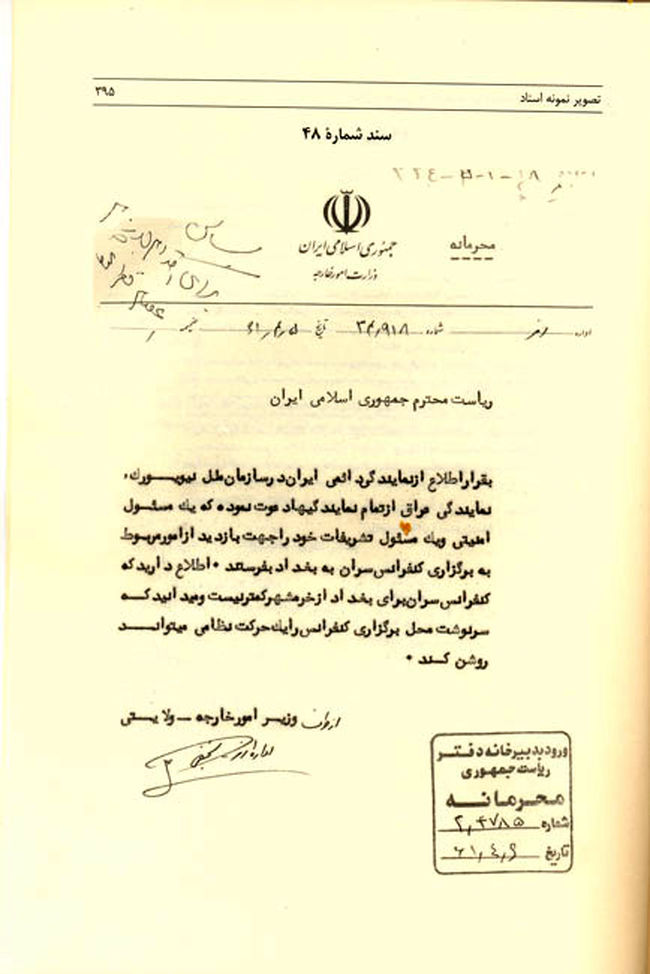 تصویر نمونه اسناد ۳۹۵
سند شمارهٔ ۴۸
محرمانه
جمهوری اسلامی ایران
وزارت امور خارجه
اداره شماره ۳۴٫۹۱۸ تاریخ ۶۱٫۴٫۵
ریاست محترم جمهوری اسلامی ایران
بقرار اطلاع از نمایندگی دائمی ایران در سازمان ملل نیویورک،
نمایندگی عراق از تمام نمایندگیها دعوت نموده که یک مسئول
امنیتی و یک مسئول تشریفات خود را جهت بازدید از امور مربوط
به برگزاری کنفرانس سران به بغداد بفرستند ۰ اطلاع دارید که
کنفرانس سران برای بغداد از خرمشهر کمتر نیست و میدانید که
سرنوشت محل برگزاری کنفرانس را یک حرکت نظامی میتواند
روشن کند ۰
از طرف وزیر امور خارجه - ولایتی
ورود به دبیرخانه دفتر
ریاست جمهوری
محرمانه
شماره ۲٫۴۷۸۵
تاریخ ۶۱٫۴٫۶